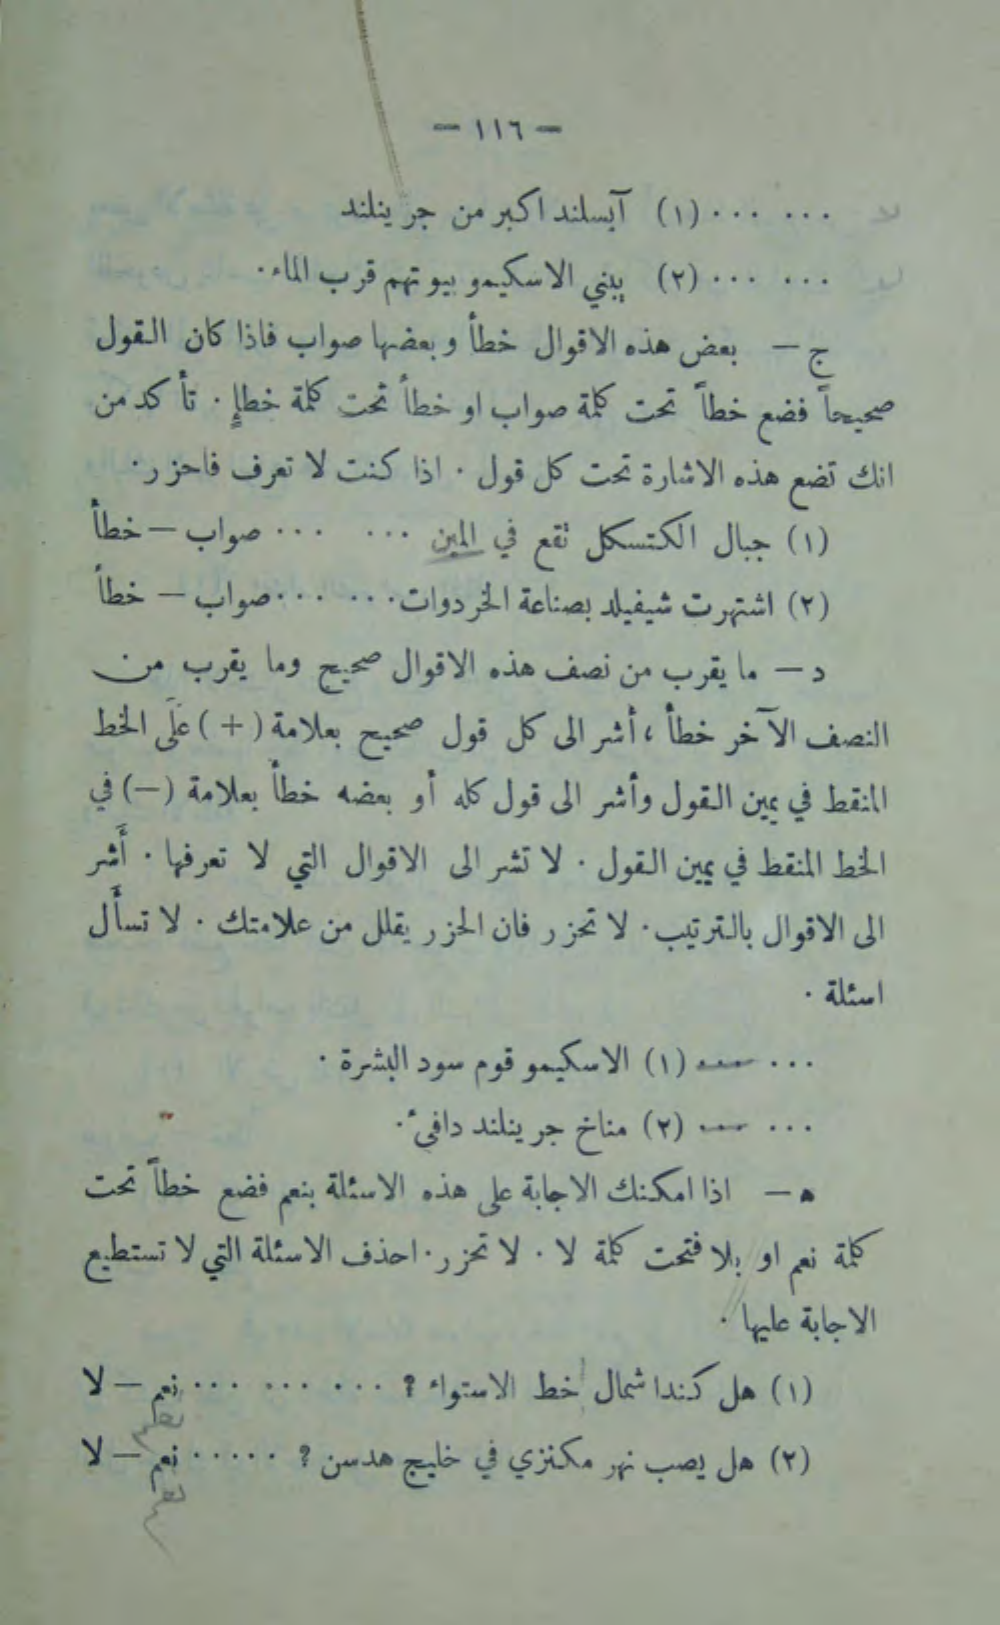 - ١١٦ -
... ... (١) آبسلند اكبر من جرينلند
... ... (٢) يبني الاسكيمو بيوتهم قرب الماء.
ج - بعض هذه الاقوال خطأ وبعضها صواب فاذا كان القول
صحيحاً فضع خطاً تحت كلمة صواب او خطأ تحت كلمة خطإٍ. تأكد من
انك تضع هذه الاشارة تحت كل قول. اذا كنت لا تعرف فاحزر.
(١) جبال الكتسكل تقع في المين ... ... صواب - خطأ
(٢) اشتهرت شيفيلد بصناعة الخردوات...... صواب - خطأ
د - ما يقرب من نصف هذه الاقوال صحيح وما يقرب من
النصف الآخر خطأ، أشر الى كل قول صحيح بعلامة (+) عَلَى الخط
المنقط في يمين القول وأشر الى قول كله أو بعضه خطأ بعلامة (-) في
الخط المنقط في يمين القول. لا تشر الى الاقوال التي لا تعرفها. أَشر
الى الاقوال بالترتيب. لا تحزر فان الحزر يقلل من علامتك. لا تسأَل
اسئلة.
... ... (١) الاسكيمو قوم سود البشرة.
... ... (٢) مناخ جرينلند دافئ.
ه - اذا امكنك الاجابة على هذه الاسئلة بنعم فضع خطاً تحت
كلمة نعم او بلا فتحت كلمة لا. لا تحزر. احذف الاسئلة التي لا تستطيع
الاجابة عليها.
(١) هل كندا شمال خط الاستواء؟ ... ... ... نعم - لا
(٢) هل يصب نهر مكنزي في خليج هدسن؟ ..... نعم - لا